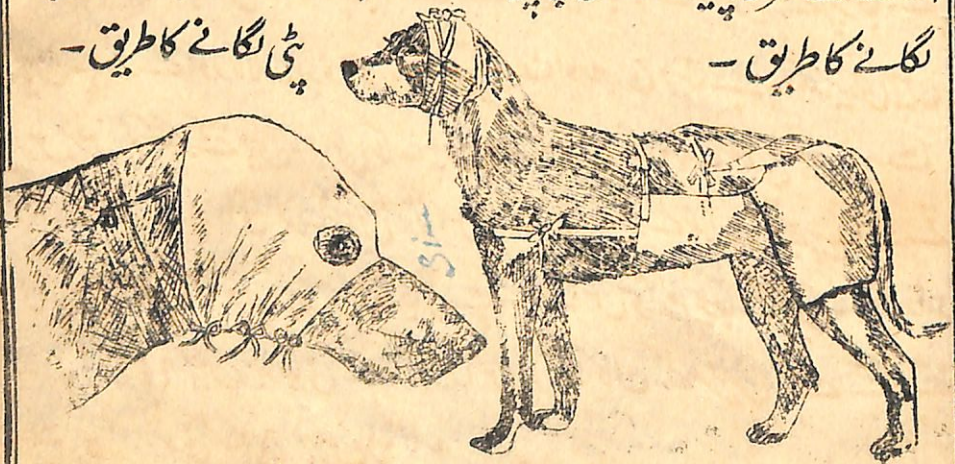 لگانے کا طریق ۔
پٹی لگانے کا طریق ۔